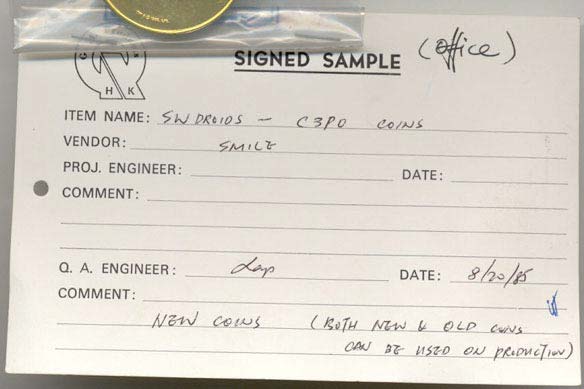 SIGNED SAMPLE (office)
H K
ITEM NAME: SW DROIDS - C3PO COINS
VENDOR: SMILE
PROJ. ENGINEER: DATE:
COMMENT:
Q. A. ENGINEER: DATE: 8/20/85
COMMENT:
NEW COINS (BOTH NEW & OLD COINS
CAN BE USED ON PRODUCTION)